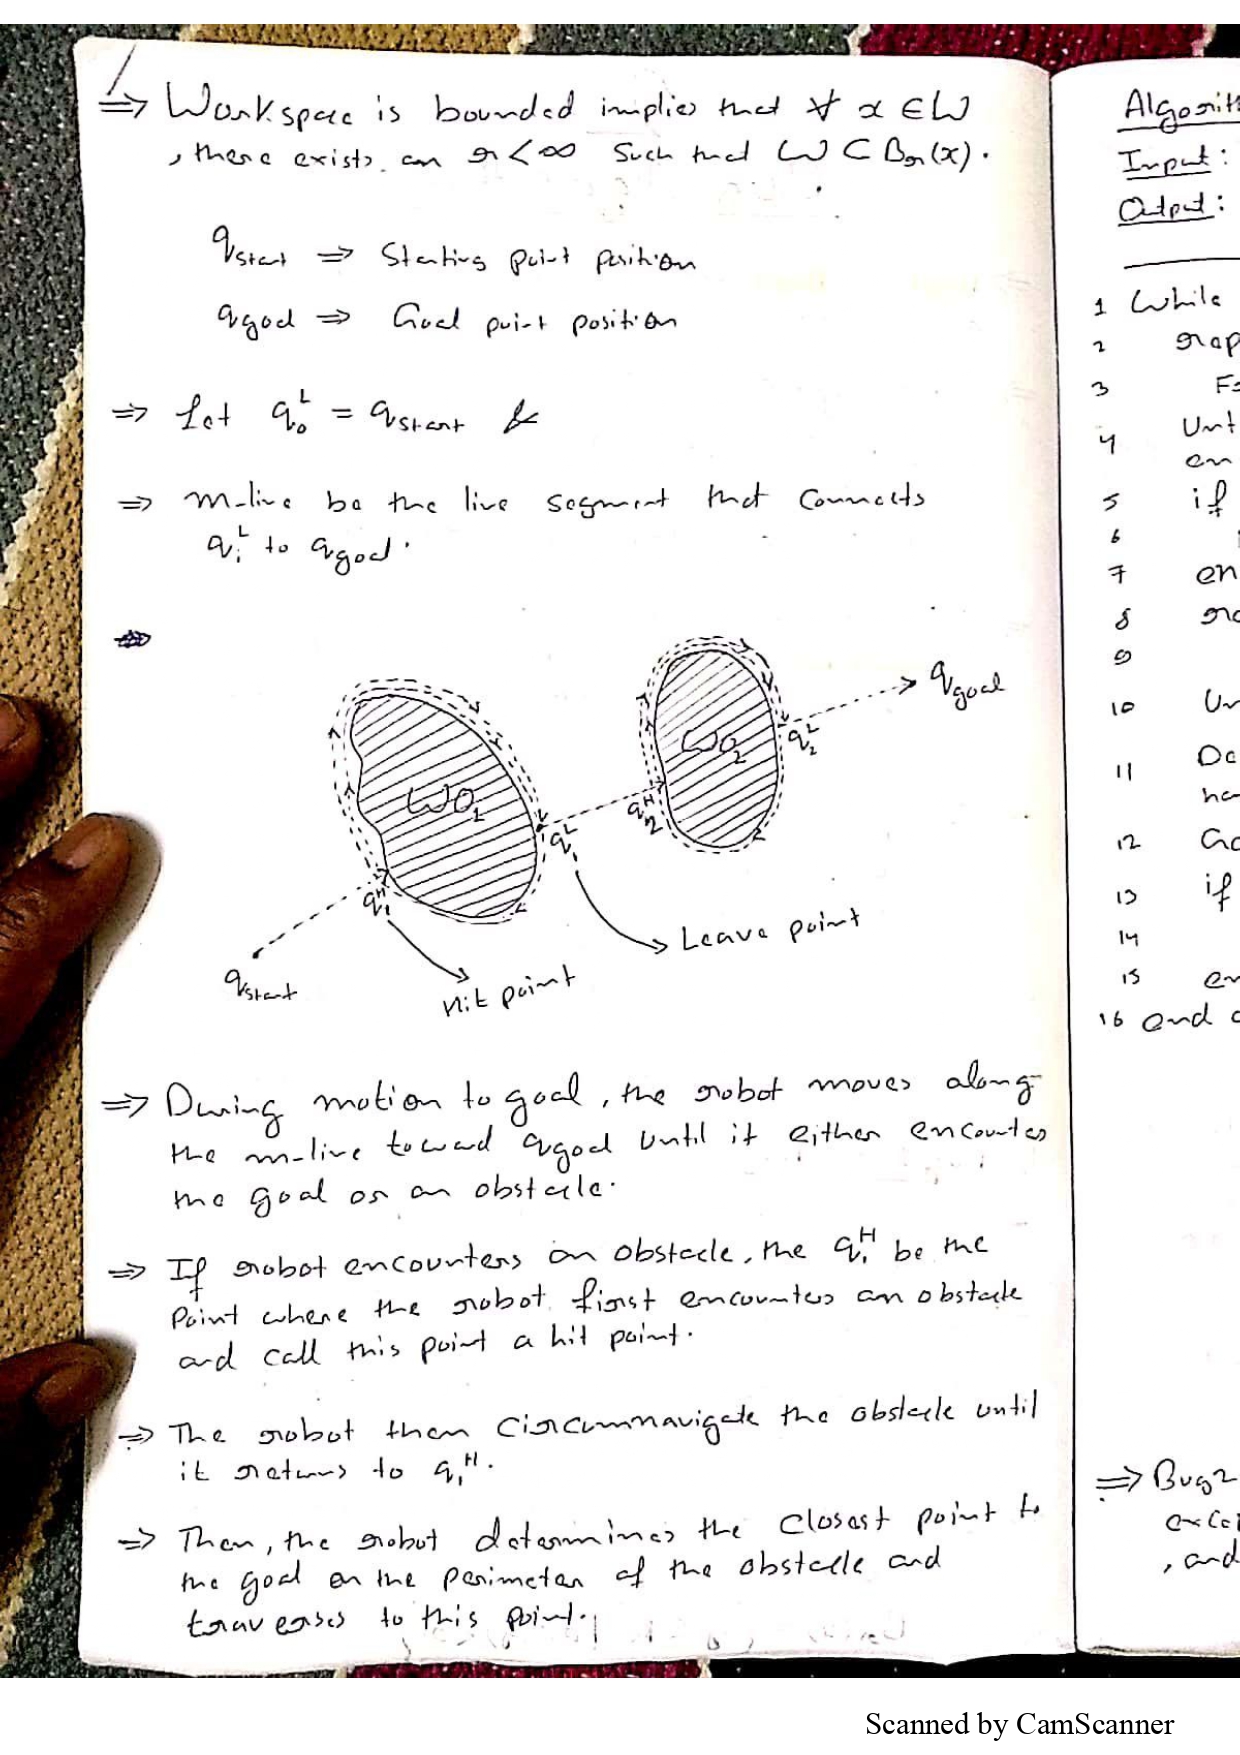 ⇒ Workspace is bounded implies that ∀ x ∈ W
, there exists an r < ∞ such that W ⊂ Br(x).
qstart ⇒ Starting point position
qgoal ⇒ Goal point position
⇒ Let q₀ᴸ = qstart &
⇒ m-line be the line segment that connects
qᵢᴸ to qgoal.
qgoal
WO₂
q₂ᴸ
WO₂
q₂ᴴ
q₁ᴸ
q₁ᴴ
Leave point
qstart
Hit point
⇒ During motion to goal, the robot moves along
the m-line toward qgoal until it either encounters
the goal or an obstacle.
⇒ If robot encounters an obstacle, the q₁ᴴ be the
point where the robot first encounters an obstacle
and call this point a hit point.
⇒ The robot then circumnavigate the obstacle until
it returns to q₁ᴴ.
⇒ Then, the robot determines the closest point to
the goal on the perimeter of the obstacle and
traverses to this point.
Input:
Output:
1 While
2
3
4
5 if
6
7
8
9
10
11
12
13 if
14
15
16 end
⇒ Bug2
, and
Scanned by CamScanner